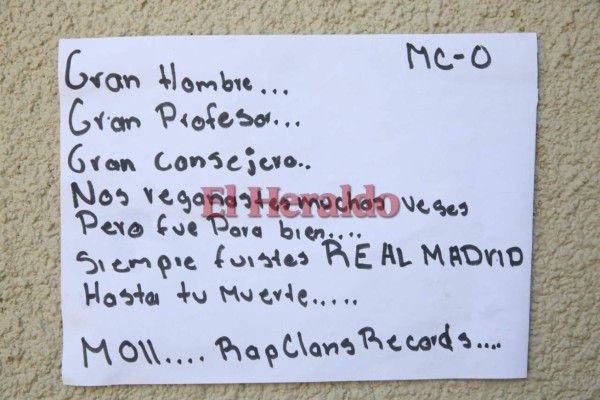 MC-O
Gran Hombre...
Gran Profesor...
Gran Consejero..
Nos regañastes muchas veses
El Heraldo
Pero fue Para bien....
Siempre fuistes REAL MADRID
Hasta tu Muerte.....
MOll.... RapClansRecords....